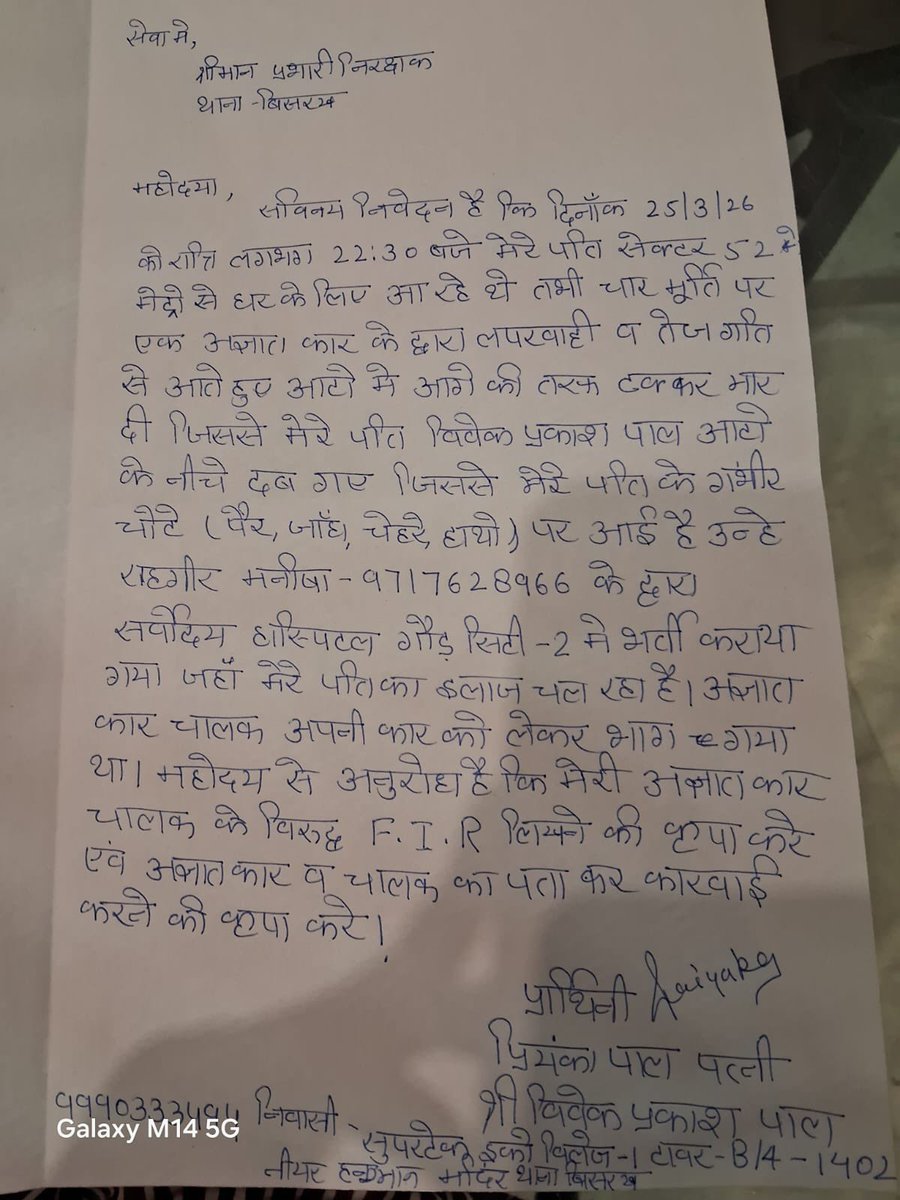 सेवा मे,
श्रीमान प्रभारी निरक्षाक
थाना - बिसरख
महोदया,
सविनय निवेदन है कि दिनाँक 25/3/26
को रात्रि लगभग 22:30 बजे मेरे पति सेक्टर 52 मे
मेट्रो से घर के लिए आ रहे थे तभी चार मूर्ति पर
एक अज्ञात कार के द्वारा लपरवाही व तेज गति
से आते हुए आटो मे आगे की तरफ टक्कर मार
दी जिससे मेरे पति विवेक प्रकाश पाल आटो
के नीचे दब गए जिससे मेरे पति के गंभीर
चोटे (पैर, जाँघ, चेहरे, हाथो) पर आई है उन्हे
राहगीर मनीषा - 9717628966 के द्वारा
सर्वोदय हास्पिटल गौड़ सिटी -2 मे भर्ती कराया
गया जहाँ मेरे पति का इलाज चल रहा है। अज्ञात
कार चालक अपनी कार को लेकर भाग गया
था। महोदय से अनुरोध है कि मेरी अज्ञात कार
चालक के विरुद्ध F.I.R लिखने की कृपा करे
एवं अज्ञात कार व चालक का पता कर कारवाई
करने की कृपा करे।
प्रार्थिनी
प्रियंका पाल पत्नी
श्री विवेक प्रकाश पाल
निवासी -
सुपरटेक इको विलेज-1 टावर-B/4-1402
नीयर हनुमान मंदिर थाना बिसरख
Galaxy M14 5G